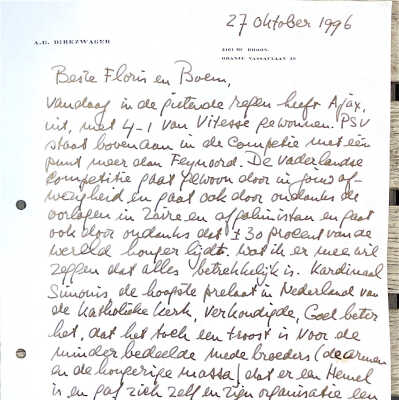 27 Oktober 1996
A.G. DIRKZWAGER
ORANJE NASSAULAAN 18
Beste Floris en Boem,
Vandaag in de gietende regen heeft Ajax,
uit, met 4-1 van Vitesse gewonnen. PSV
staat bovenaan in de Competie met één
punt meer dan Feynoord. De vaderlandse
Competitie gaat gewoon door in jouw af-
weigheid en gaat ook door ondanks de
oorlogen in Zaïre en afganistan en gaat
ook door ondanks dat ± 30 procent van de
wereld honger lijdt. Wat ik er mee wil
zeggen dat alles betrekkelijk is. Kardinaal
Simonis, de hoogste prelaat in Nederland van
de Katholieke Kerk, verkondigde, God beter
het, dat het toch een troost is voor de
minder bedeelde mede broeders (de armen
en de hongerige massa) dat er een Hemel
is en gaf zich zelf en zijn organisatie een